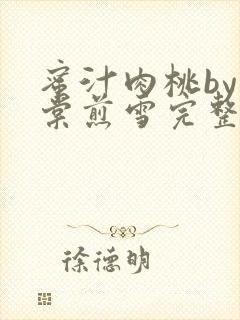 蜜汁肉桃by
棠煎雪完整
徐德明